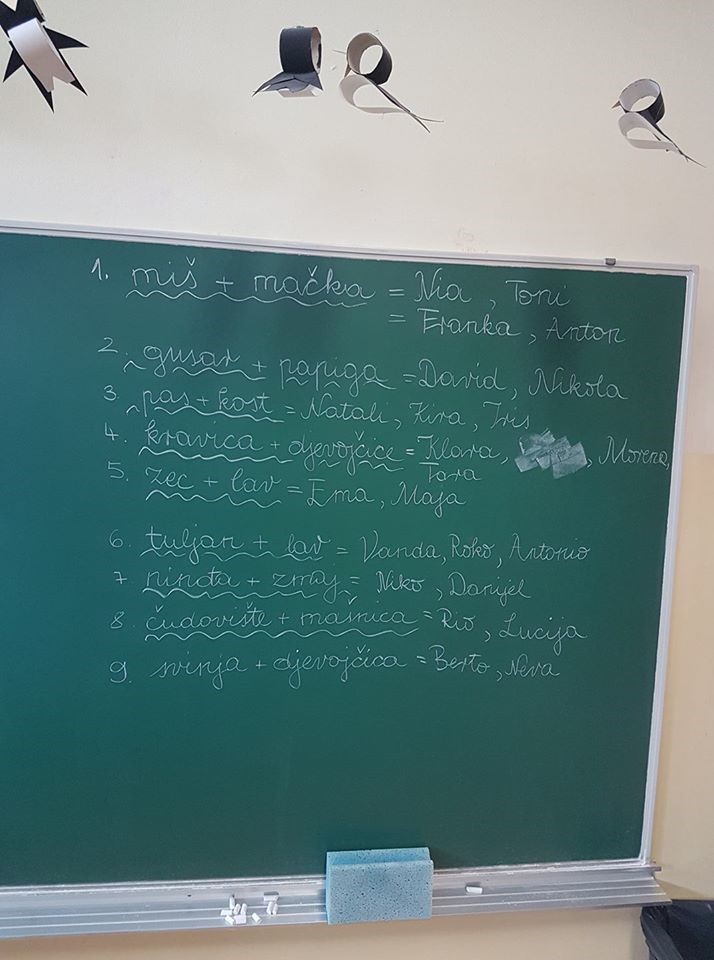 1. miš + mačka = Nia, Toni
= Franka, Anton
2. gusar + papiga = David, Nikola
3. pas + kost = Natali, Kira, Iris
4. kravica + djevojčice = Klara, , Morena,
Tara
5. zec + lav = Ema, Maja
6. tuljan + lav = Vanda, Roko, Antonio
7. ninđa + zmaj = Niko, Danijel
8. čudovište + mašnica = Rio, Lucija
9. svinja + djevojčica = Berto, Neva